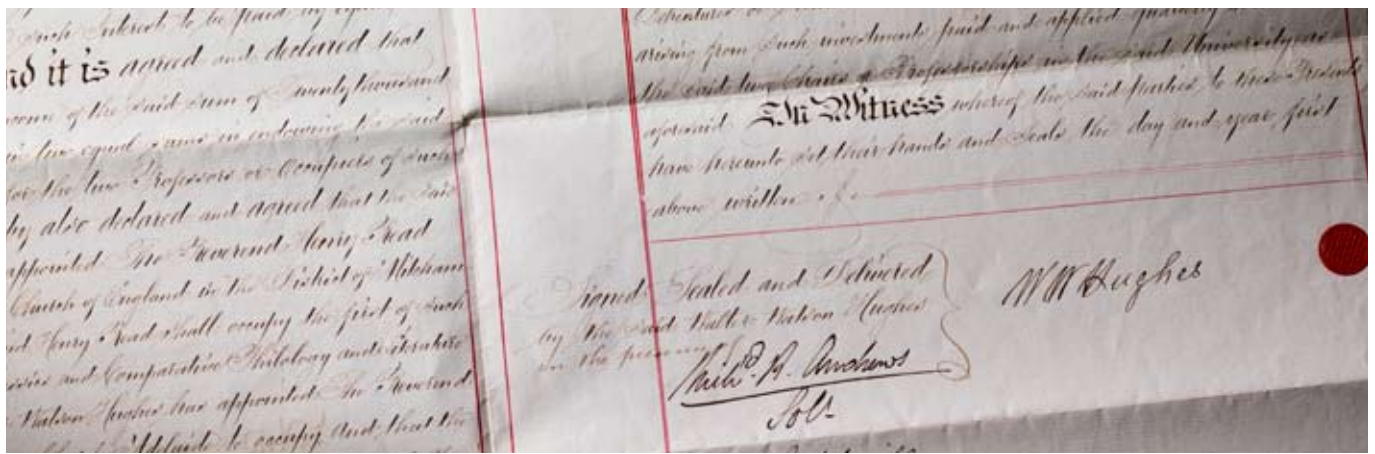 such Interest to be paid by
nd it is agreed and declared that
of the said sum of Twenty thousand
two equal sums in endowing the said
for the two Professors or Occupiers of such
by also declared and agreed that the said
appointed The Reverend Henry Read
Church of England in the District of Mitcham
Henry Read shall occupy the first of such
and Comparative Philology and Literature
Watson Hughes has appointed The Reverend
Adelaide to occupy and that the
arising from such investments paid and applied quarterly
the said two Chairs or Professorships in the said University
aforesaid In Witness whereof the said parties to these Presents
have hereunto set their hands and seals the day and year first
above written
Signed Sealed and Delivered
by the said Walter Watson Hughes
in the presence of
R. Andrews
Solr
W W Hughes